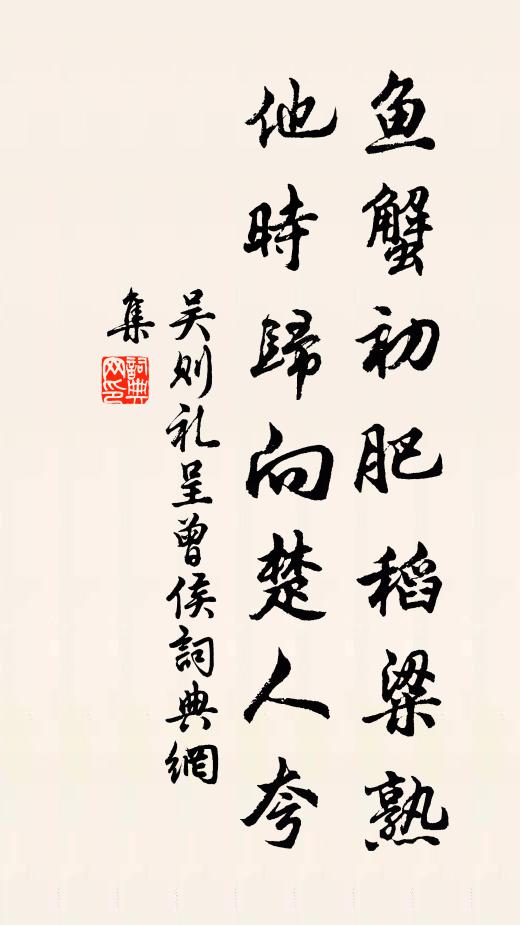 鱼蟹初肥稻粱熟
他時歸向楚人夸
吴则礼呈曾侯詞典網
集
詞典网印